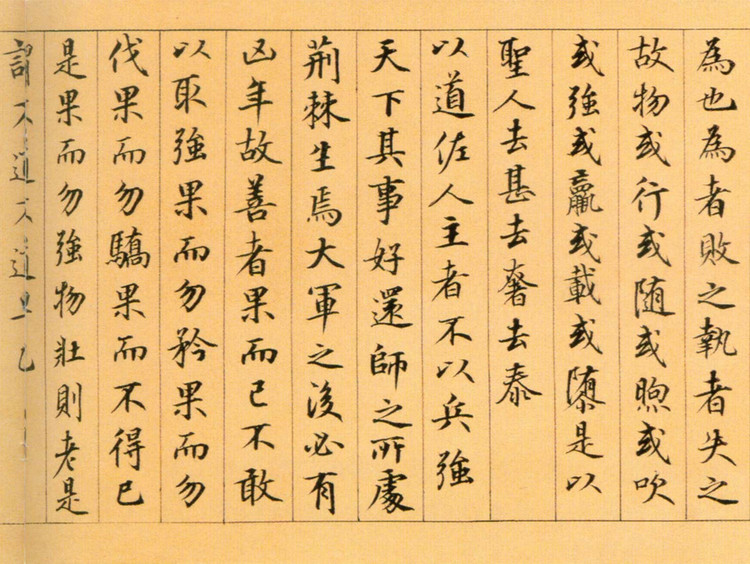 為也為者敗之執者失之
故物或行或随或煦或吹
或強或羸或載或隳是以
聖人去甚去奢去泰
以道佐人主者不以兵強
天下其事好還師之所處
荊棘生焉大軍之後必有
凶年故善者果而已不敢
以取強果而勿矜果而勿
伐果而勿驕果而不得已
是果而勿強物壯則老是
謂不道不道早已